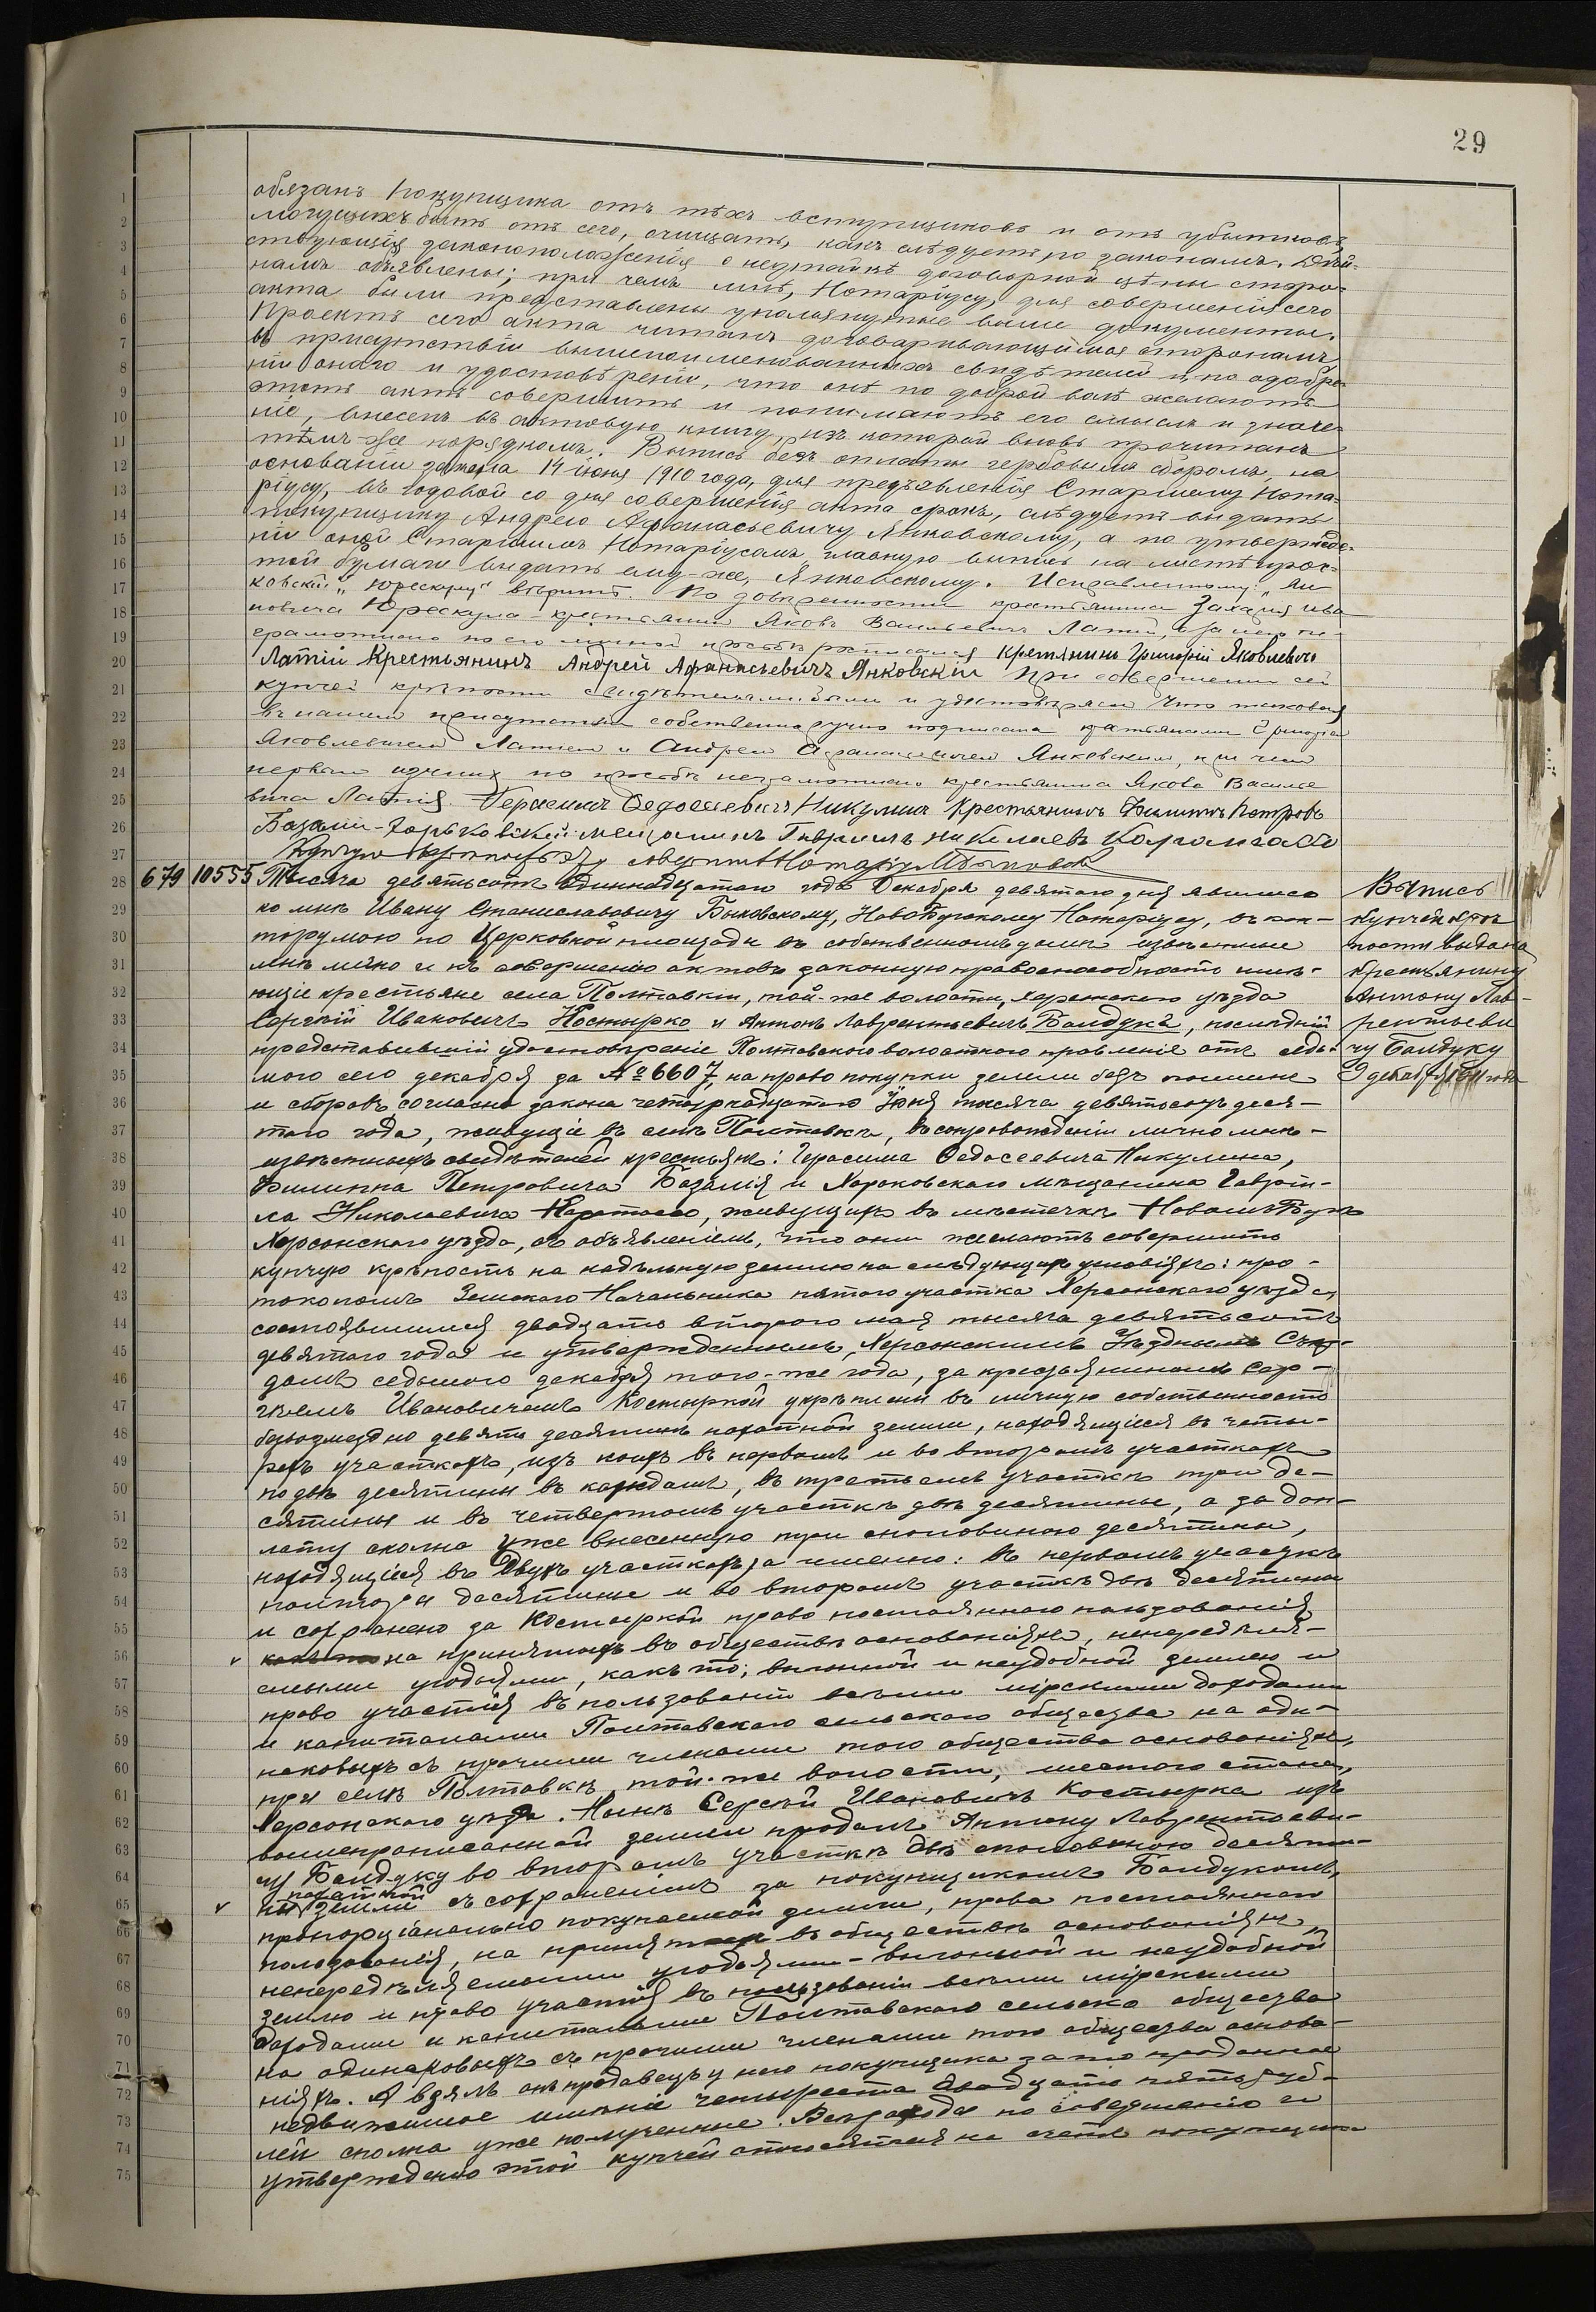 29
обязанъ покупщика отъ тѣхъ вступщиковъ и отъ убытковъ,
могущихъ быть отъ сего, очищать, какъ слѣдуетъ по законамъ. Дѣй-
ствующія законоположенія о неутайкѣ договорной цѣны сторо-
намъ объявлены; при чемъ мнѣ, Нотаріусу, для совершенія сего
акта были представлены упомянутые выше документы.
Проектъ сего акта читанъ договаривающимся сторонамъ
въ присутствіи вышепоименованныхъ свидѣтелей и, по одобре-
ніи онаго и удостовѣреніи, что онѣ по доброй волѣ желаютъ
этотъ актъ совершить и понимаютъ его смыслъ и значе-
ніе, внесенъ въ актовую книгу, изъ которой вновь прочитанъ
тѣмъ-же порядкомъ. Выпись безъ оплаты гербовымъ сборомъ, на
основаніи закона 14 іюня 1910 года, для предъявленія Старшему Нота-
ріусу, въ годовой со дня совершенія акта срокъ, слѣдуетъ выдать
покупщику Андрею Афанасьевичу Янковскому, а по утвержде-
ніи оной Старшимъ Нотаріусомъ главную выпись на листѣ прос-
той бумаги выдать ему-же, Янковскому. Исправленному: „Ян
ковскій“, „Юрескулъ“ вѣрить. По довѣренности крестьянина Захарія Ива
новича Юрескула крестьянинъ Яковъ Васильевичъ Латій, а за него не-
грамотнаго по его личной просьбѣ росписался крестянинъ Григорій Яковлевичъ
Латій Крестьянинъ Андрей Афанасьевичъ Янковскій При совершеніи сей
купчей крѣпости свидѣтелями были и удостовѣряемъ что таковая
въ нашемъ присутствіи собственноручно подписана крестьянами Григоріемъ
Яковлевичемъ Латіемъ и Андреемъ Афанасьевичемъ Янковскимъ, при чемъ
первымъ изъ нихъ по просьбѣ неграмотнаго крестьянина Якова Василье
вича Латія. Герасимъ Федосеевичъ Никулинъ Крестьянинъ Филиппъ Петровъ
Базалій - Харьковскій мещанинъ Гавріилъ Николаевъ
Купчую крѣпость эту совершилъ Нотаріусъ Быковскій
679 10555 Тысяча девятьсотъ одиннадцатаго года Декабря девятаго дня явились
ко мнѣ Ивану Станиславовичу Быковскому, Ново-Бугскому Нотаріусу, въ кон-
тору мою по Церковной площади въ собственномъ домѣ извѣстные
мнѣ лично и къ совершенію актовъ законную правоспособность имѣ-
ющіе крестьяне села Полтавки, той-же волости, Херсонскаго уѣзда
Сергѣй Ивановичъ Костырко и Антонъ Лаврентьевичъ Балдукъ, послѣдній
представившій удостовѣреніе Полтавскаго волостного правленія отъ седь-
мого сего декабря за № 6607, на право покупки земли безъ пошлинъ
и сборовъ согласно закона четырнадцатаго Іюня тысяча девятьсотъ деся-
таго года, живущіе въ селѣ Полтавкѣ, въ сопровожденіи лично мнѣ-
извѣстныхъ свидѣтелей крестьянъ: Герасима Федосеевича Никулина,
Филиппа Петровича Базалія и Харьковскаго мѣщанина Гавріи-
ла Николаевича, живущихъ въ мѣстечкѣ Новомъ-Бугѣ
Херсонскаго уѣзда, съ объявленіемъ, что они желаютъ совершить
купчую крѣпость на надѣльную землю на слѣдующихъ условіяхъ: про-
токоломъ Земскаго Начальника пятаго участка Херсонскаго уѣзда,
состоявшимся двадцать второго мая тысяча девятьсотъ
девятаго года и утвержденнымъ, Херсонскимъ Уѣзднымъ Съѣз-
домъ седьмого декабря того-же года, за крестьяниномъ Сер-
гѣемъ Ивановичемъ Костыркой укрѣплены въ личную собственность
безвозмездно девять десятинъ пахатной земли, находящіеся въ четы-
рехъ участкахъ, изъ коихъ въ первомъ и во второмъ участкахъ
по двѣ десятины въ каждомъ, въ третьемъ участкѣ три де-
сятины и въ четвертомъ участкѣ двѣ десятины, а за доп-
лату сполна уже внесенную три споловиною десятины,
находящіеся въ двухъ участкахъ, а именно: въ первомъ участкѣ
полтора десятины и во второмъ участкѣ двѣ десятины
и сохранено за Костыркой право постояннаго пользованія
на принятыхъ въ обществѣ основаніяхъ, непередѣляе-
емыми угодьями, какъ то: выгонной и неудобной землею и
право участія въ пользованіи всѣми мірскими доходами
и капиталами Полтавскаго сельскаго общества на оди-
наковыхъ съ прочими членами того общества основаніяхъ,
при селѣ Полтавкѣ, той-же волости, шестого стана,
Херсонскаго уѣзда. Нынѣ Сергѣй Ивановичъ Костырка изъ
вышепрописанной земли продалъ Антону Лаврентьеви-
чу Балдуку во второмъ участкѣ двѣ споловиною десяти-
ны пахатной земли съ сохраненіемъ за покупщикомъ Балдукомъ,
пропорціонально покупаемой земли, права постояннаго
пользованія, на принятыхъ въ обществѣ основаніяхъ,
непередѣляемыми угодьями - выгонной и неудобной
землею и право участія въ пользованіи всѣми мірскими
доходами и капиталами Полтавскаго сельско общества
на одинаковыхъ съ прочими членами того общества основа-
ніяхъ. А взялъ онъ продавецъ у него покупщика за то проданное
недвижимое имѣніе четыреста двадцать пять руб-
лей сполна уже полученные. Все расходы по совершенію и
утвержденію этой купчей относятся на счетъ покупщика
Выпись
купчей крѣ
пости выдана
крестьянину
Антону Лав-
рентьеви
чу Балдуку
9 декабря 1911 года